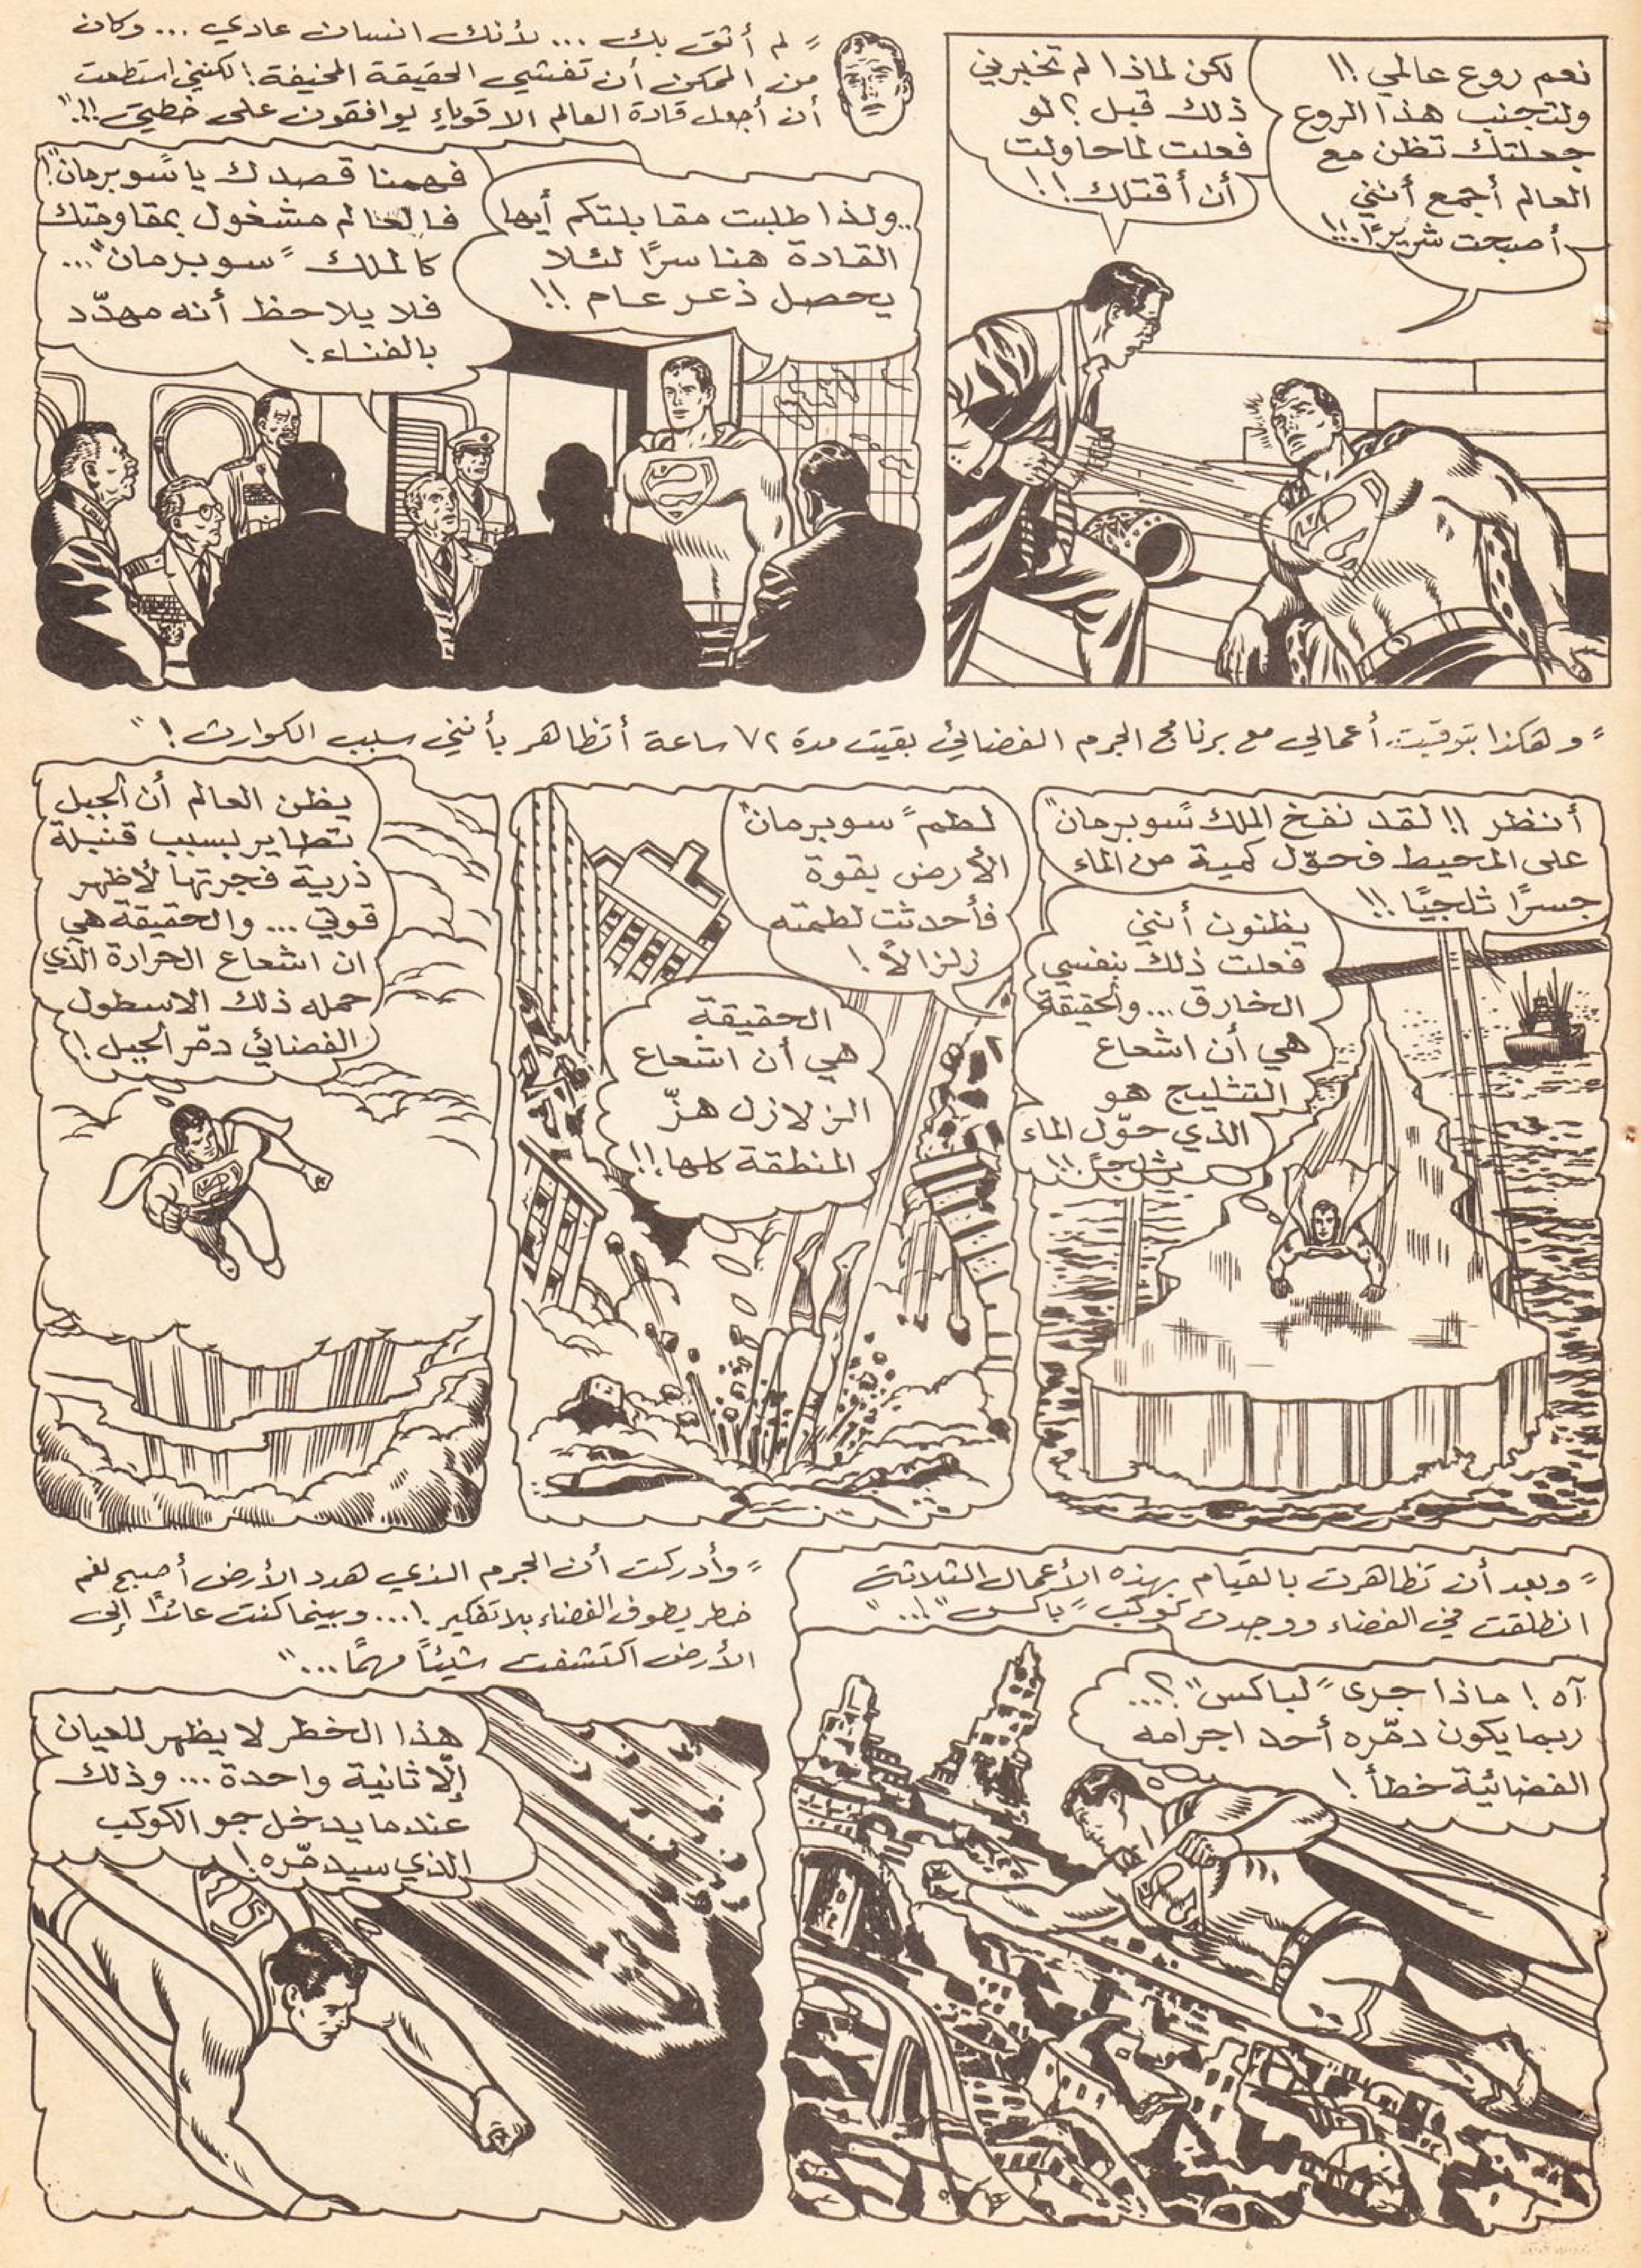 نعم روع عالمي !!
ولتجنب هذا الروع
جعلتك تظن مع
العالم أجمع أنني
أصبحت شريرًا..!!
لكن لماذا لم تخبرني
ذلك قبل ؟ لو
فعلت لما حاولت
أن أقتلك !!
" لم أثق بك ... لأنك انسان عادي ... وكان
من الممكن أن تفشي الحقيقة المخيفة ! لكنني استطعت
أن أجعل قادة العالم الاقوياء يوافقون على خطتي !!.."
..ولذا طلبت مقابلتكم أيها
القادة هنا سرًا لئلا
يحصل ذعر عام !!
فهمنا قصدك يا "سوبرمان"!
فالعالم مشغول بمقاومتك
كالملك "سوبرمان"...
فلا يلاحظ أنه مهدّد
بالفناء !
" وهكذا بتوقيت أعمالي مع برنامج الجرم الفضائي بقيت مدة ٧٢ ساعة أتظاهر بأنني سبب الكوارث ! "
أنظر !! لقد نفخ الملك "سوبرمان"
على المحيط فحوّل كمية من الماء
جسرًا ثلجيًا !!
يظنون أنني
فعلت ذلك بنفسي
الخارق ... والحقيقة
هي أن اشعاع
التثليج هو
الذي حوّل الماء
ثلجًا !!
لطم "سوبرمان"
الأرض بقوة
فأحدثت لطمته
زلزالاً !
الحقيقة
هي أن اشعاع
الزلازل هزّ
المنطقة كلها !!
يظن العالم أن الجبل
تطاير بسبب قنبلة
ذرية فجرتها لأظهر
قوتي ... والحقيقة هي
ان اشعاع الحرارة الذي
حمله ذلك الاسطول
الفضائي دمّر الجبل !
" وبعد أن تظاهرت بالقيام بهذه الأعمال الثلاثة
انطلقت في الفضاء ووجدت كوكب "باكس" !... "
آه ! ماذا جرى "لباكس" ؟...
ربما يكون دمّره أحد اجرامه
الفضائية خطأ !
" وأدركت أن الجرم الذي هدد الأرض أصبح لغم
خطر يطوف الفضاء بلا تفكير !... وبينما كنت عائدًا إلى
الأرض اكتشفت شيئاً مهمًا ... "
هذا الخطر لا يظهر للعيان
إلّا ثانية واحدة ... وذلك
عندما يدخل جو الكوكب
الذي سيدمّره !